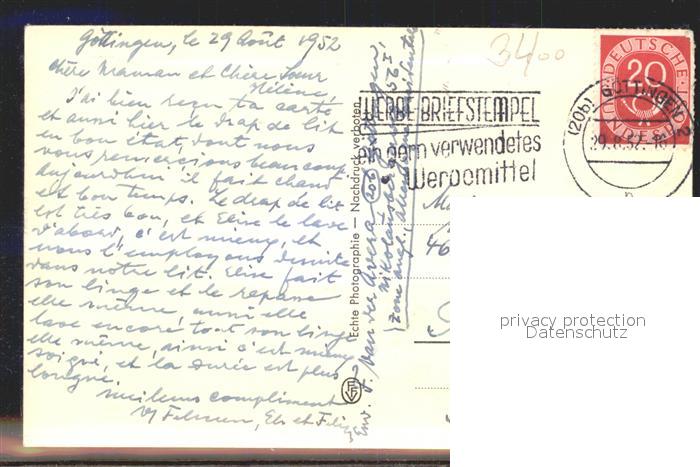 Göttingen, le 29 Août 1952
Chère Maman et Chère Sœur
Hélène,
J'ai bien reçu ta carte
et aussi hier le drap de lit
en bon état, dont nous
vous remercions beaucoup.
Aujourd'hui il fait chaud
et bon temps. Le drap de lit
est très bon, et Elise le lave
d'abord, c'est mieux, et
nous l'employons ensuite
dans notre lit. Elise fait
son linge et le repasse
elle même, aussi elle
lave encore tout son linge
elle même, ainsi c'est mieux
soigné, et la durée est plus
longue.
meilleurs compliments
Elis et
Env. J. van der
zone angl.
Echte Photographie — Nachdruck verboten
3400
WERBE-BRIEFSTEMPEL
ein gern verwendetes
Werbemittel
(20b) GÖTTINGEN 2
29.8.52
DEUTSCHE
POST
20
46
privacy protection
Datenschutz